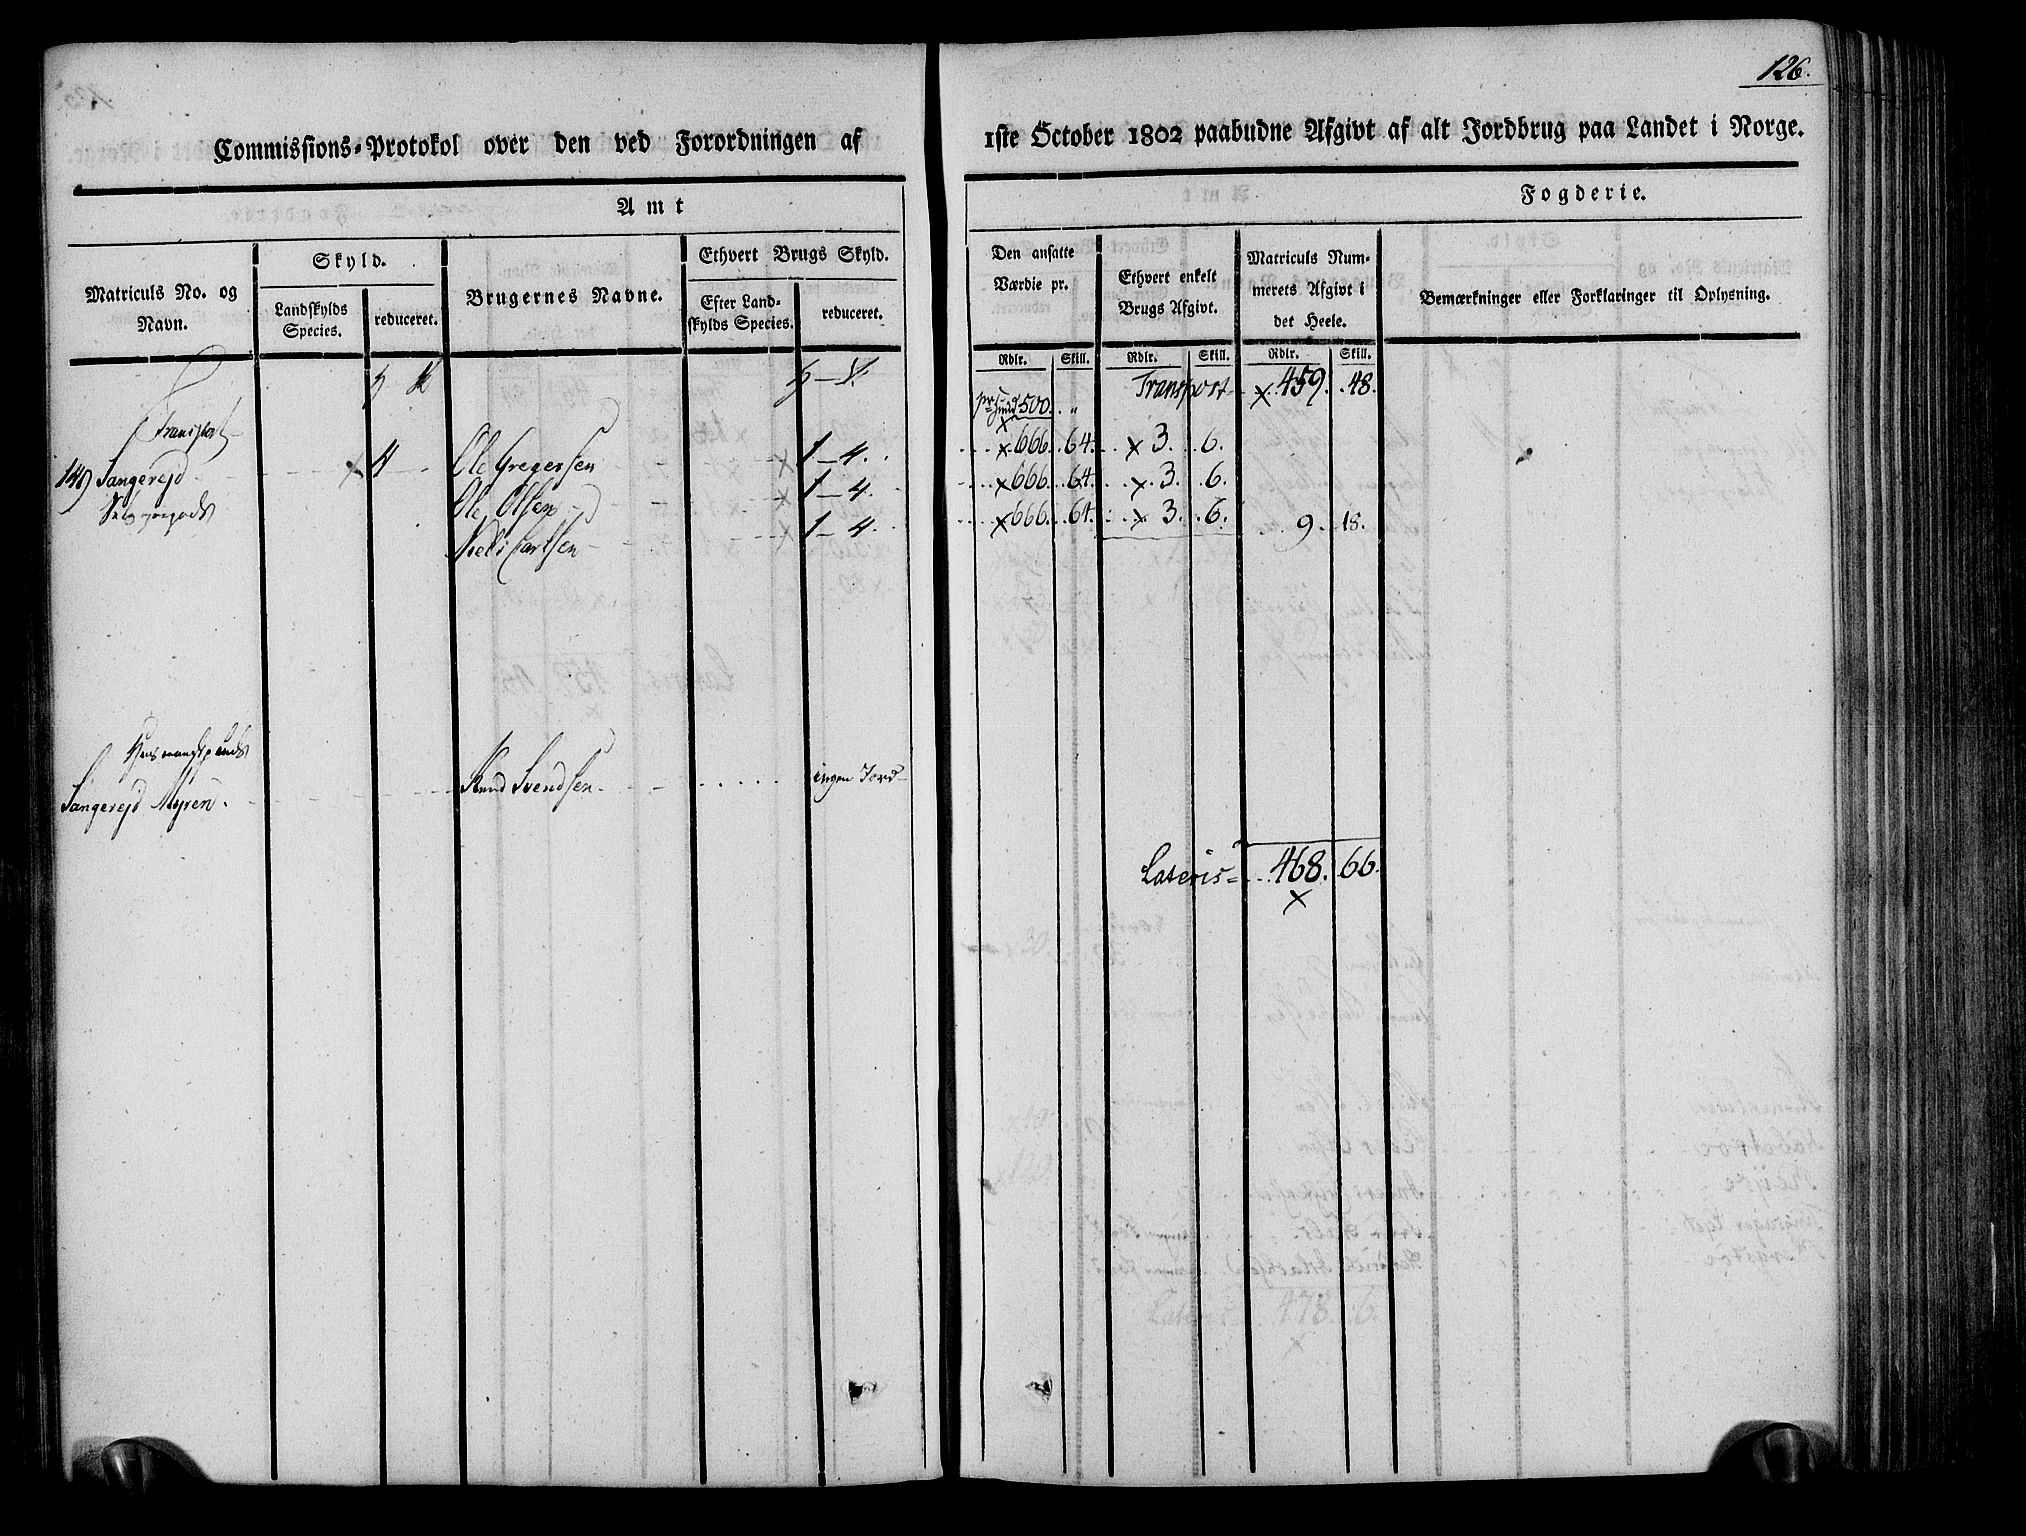 126.
Commissions-Protokol over den ved Forordningen af 1ste October 1802 paabudne Afgivt af alt Jordbrug paa Landet i Norge.
Amt
Fogderie.
Matriculs No. og Navn.
Skyld.
Landskylds Species.
reduceret.
Brugernes Navne.
Ethvert Brugs Skyld.
Efter Landskylds Species.
reduceret.
Den ansatte Værdie pr.
Ethvert enkelt Brugs Afgivt.
Matriculs Nummerets Afgivt i det Heele.
Bemærkninger eller Forklaringer til Oplysning.
Rdlr. Skill. Rdlr. Skill. Rdlr. Skill.
Transport 459. 48.
500. "
Transport
Sangerejd 4 Ole Gregersen 1-4. 666. 64. 3. 6.
Ole Olsen 1-4. 666. 64. 3. 6.
Niels Carlsen 1-4. 666. 64. 3. 6. 9. 18.
Huusmandsplads
Sangerejd Myren. Knud Svendsen ingen Jord
Lateris 468. 66.